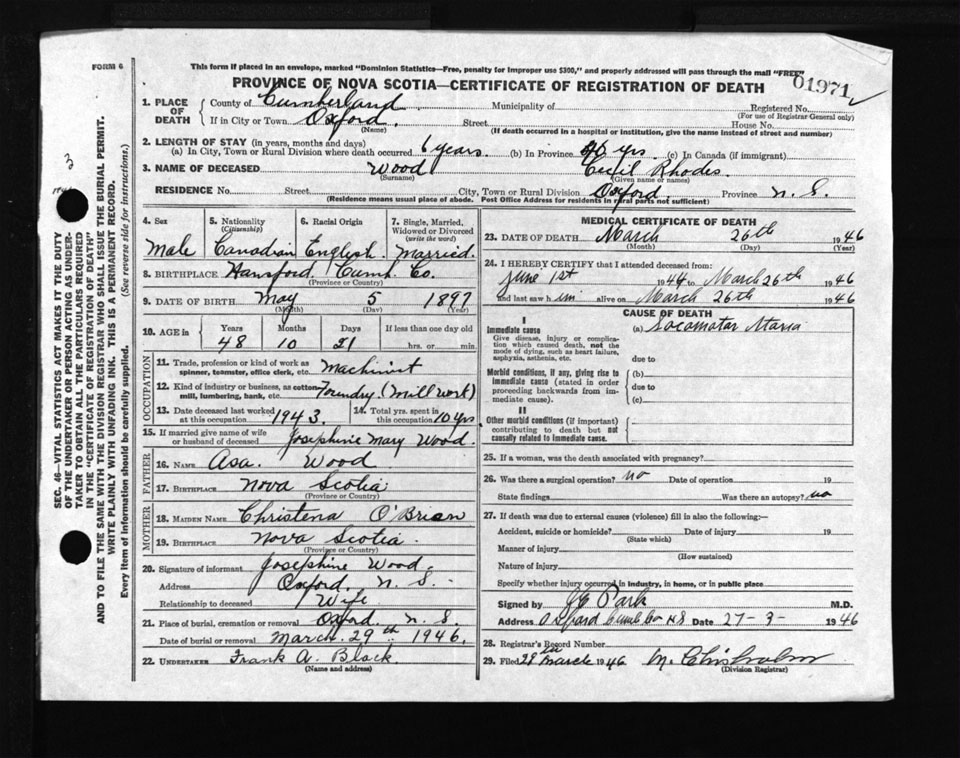 FORM 6
This form if placed in an envelope, marked "Dominion Statistics—Free, penalty for improper use $300," and properly addressed will pass through the mail "FREE"
PROVINCE OF NOVA SCOTIA—CERTIFICATE OF REGISTRATION OF DEATH
01971
1. PLACE OF DEATH
County of Cumberland Municipality of Registered No.
(For use of Registrar General only)
If in City or Town Oxford. Street House No.
(Name) (If death occurred in a hospital or institution, give the name instead of street and number)
2. LENGTH OF STAY (in years, months and days)
(a) In City, Town or Rural Division where death occurred 6 years. (b) In Province yrs. (c) In Canada (if immigrant)
3. NAME OF DECEASED Wood Cecil Rhodes.
(Surname) (Given name or names)
RESIDENCE No. Street City, Town or Rural Division Oxford. Province N. S.
(Residence means usual place of abode. Post Office Address for residents in rural parts not sufficient)
4. Sex
Male
5. Nationality (Citizenship)
Canadian
6. Racial Origin
English.
7. Single, Married, Widowed or Divorced (write the word)
Married.
8. BIRTHPLACE Hansford Cumb. Co.
(Province or Country)
9. DATE OF BIRTH May 5 1897
(Month) (Day) (Year)
10. AGE in Years Months Days If less than one day old
48 10 21 hrs. or min.
OCCUPATION
11. Trade, profession or kind of work as spinner, teamster, office clerk, etc. Machinist
12. Kind of industry or business, as cotton mill, lumbering, bank, etc. Foundry (Mill work)
13. Date deceased last worked at this occupation 1943
14. Total yrs. spent in this occupation 10 yrs
15. If married give name of wife or husband of deceased Josephine Mary Wood.
FATHER
16. NAME Asa. Wood
17. BIRTHPLACE Nova Scotia
(Province or Country)
MOTHER
18. MAIDEN NAME Christena O'Brian
19. BIRTHPLACE Nova Scotia.
(Province or Country)
20. Signature of informant Josephine Wood.
Address Oxford. N. S.
Relationship to deceased Wife
21. Place of burial, cremation or removal Oxford. N. S.
Date of burial or removal March. 29th 1946.
22. UNDERTAKER Frank A. Black.
(Name and address)
MEDICAL CERTIFICATE OF DEATH
23. DATE OF DEATH March 26th 1946
(Month) (Day) (Year)
24. I HEREBY CERTIFY that I attended deceased from:
June 1st 1944 to March 26th 1946
and last saw him alive on March 26th 1946
CAUSE OF DEATH
I
Immediate cause
Give disease, injury or complication which caused death, not the mode of dying, such as heart failure, asphyxia, asthenia, etc.
(a) Locomotar
due to
Morbid conditions, if any, giving rise to immediate cause (stated in order proceeding backwards from immediate cause).
(b)
due to
(c)
II
Other morbid conditions (if important) contributing to death but not causally related to immediate cause.
25. If a woman, was the death associated with pregnancy?
26. Was there a surgical operation? no Date of operation 19
State findings Was there an autopsy? no
27. If death was due to external causes (violence) fill in also the following:—
Accident, suicide or homicide? Date of injury 19
(State which)
Manner of injury
(How sustained)
Nature of injury
Specify whether injury occurred in industry, in home, or in public place
Signed by J E Park M.D.
Address Oxford Cumb Co NS Date 27-3-1946
28. Registrar's Record Number
29. Filed 28 March 1946 M. Chisholm
(Division Registrar)
SEC. 46—VITAL STATISTICS ACT MAKES IT THE DUTY
OF THE UNDERTAKER OR PERSON ACTING AS UNDER-
TAKER TO OBTAIN ALL THE PARTICULARS REQUIRED
IN THE "CERTIFICATE OF REGISTRATION OF DEATH"
AND TO FILE THE SAME WITH THE DIVISION REGISTRAR WHO SHALL ISSUE THE BURIAL PERMIT.
WRITE PLAINLY WITH UNFADING INK. THIS IS A PERMANENT RECORD.
Every item of information should be carefully supplied. (See reverse side for instructions.)